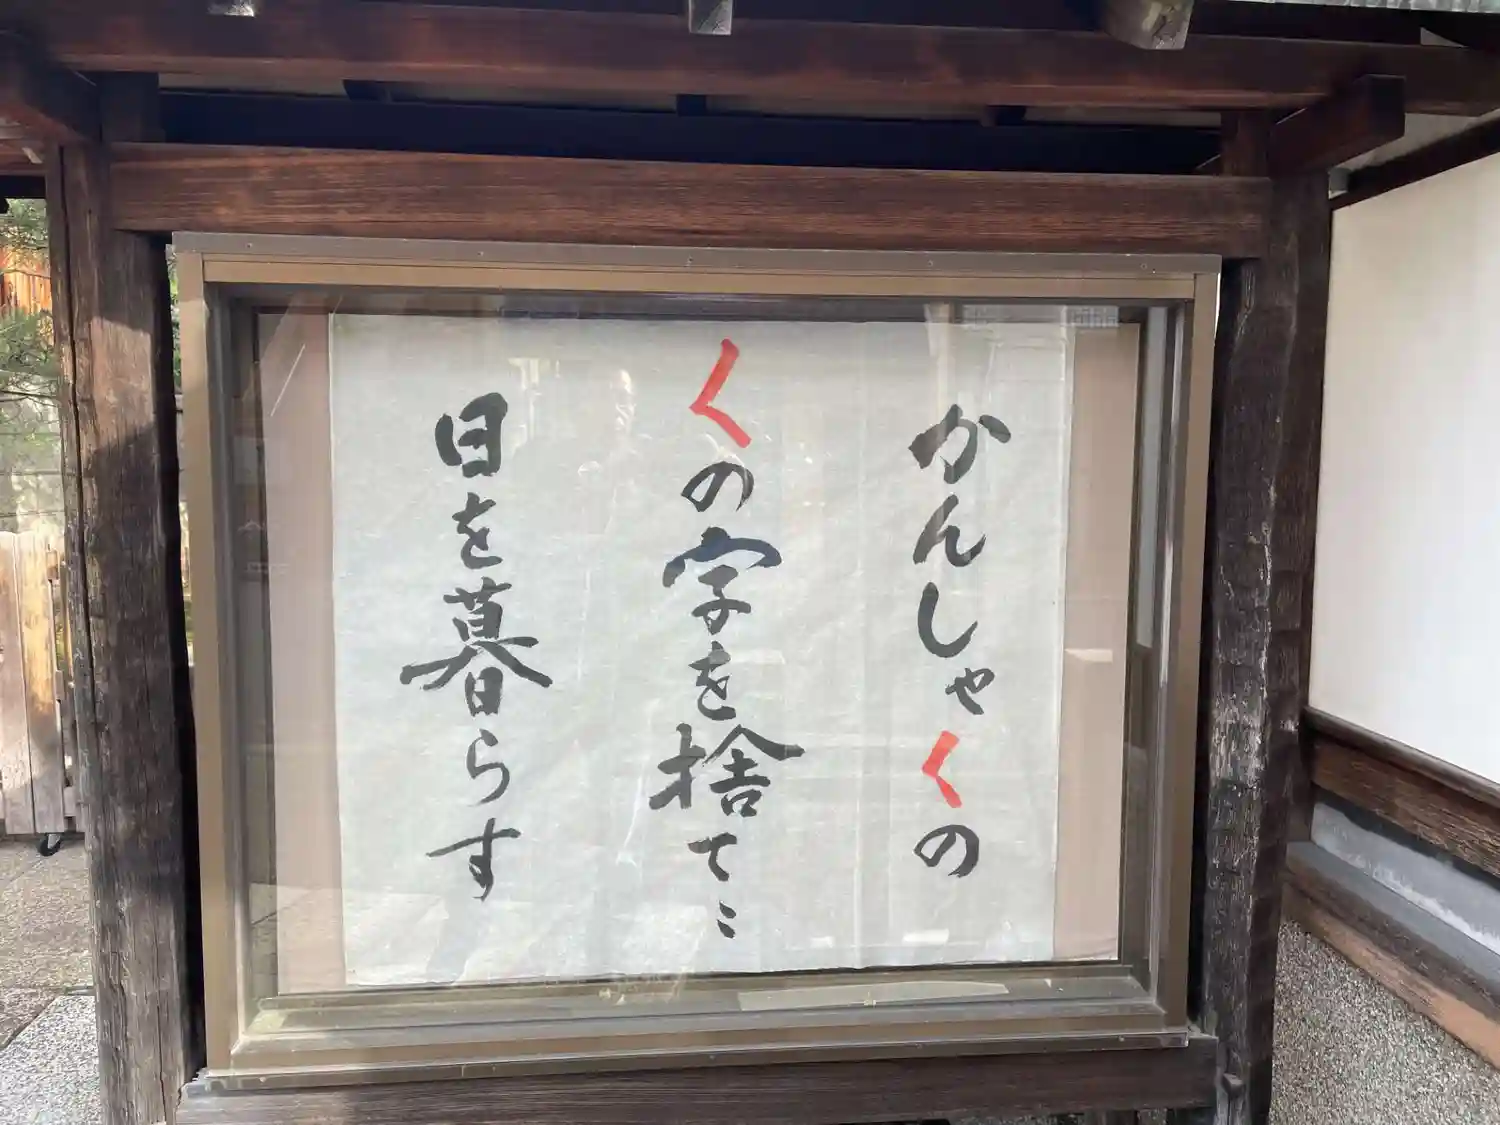 かんしゃくの
くの字を捨て‥
日を暮らす